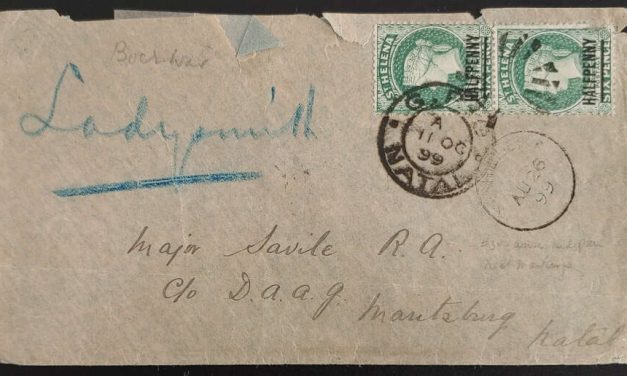 Boer War
ST HELENA
HALFPENNY
ST HELENA
HALFPENNY
SIX PENCE
Ladysmith
G.
A
11 OC
99
NATAL
AU 26
99
Major Savile R.A.
c/o D.A.A.G. Maritzburg
Natal